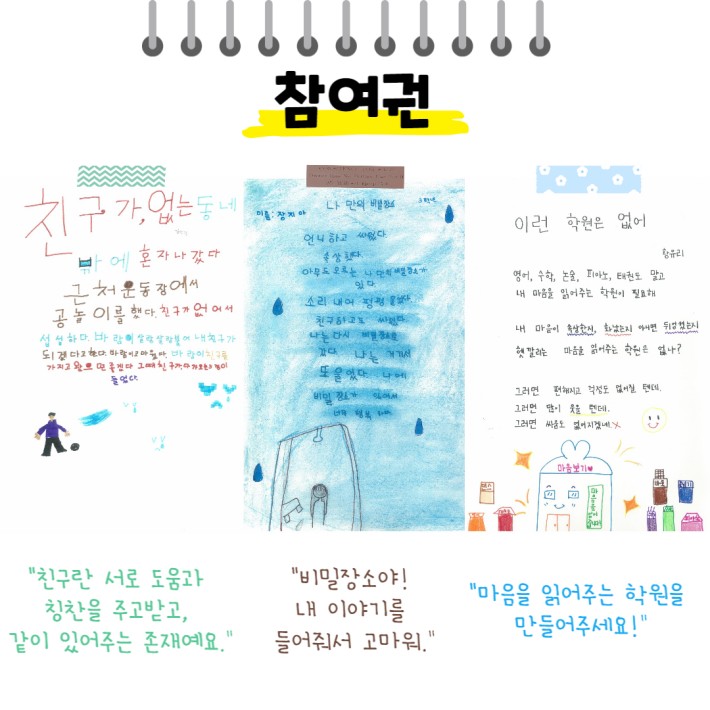 참여권
친구가, 없는 동네
밖에 혼자 나갔다
근처 운동장에서
공놀이를 했다. 친구가 없어서
섭섭하다. 바람이 살랑살랑 불어 내 친구가
되겠다고 한다. 바람이 고마웠다. 바람이 친구를
가지고 왔으면 좋겠다 그때 친구가 다가오는
들었다.
나만의 비밀장소
이름: 장지아
언니하고 싸웠다.
속상했다.
아무도 모르는 나만의 비밀장소가
있다.
소리 내어 정렁 울었다.
친구하고도 싸웠다.
나는 다시 비밀장소로
갔다. 나는 거기서
또 울었다. 나에
비밀 장소가 있어서
너무 행복 하다
이런 학원은 없어
황유리
영어, 수학, 논술, 피아노, 태권도 말고
내 마음을 읽어주는 학원이 필요해
내 마음이 속상한지, 화났는지 아니면 뒤엉켰는지
헷갈리는 마음을 읽어주는 학원은 없나?
그러면 편해지고 걱정도 없어질 텐데.
그러면 많이 웃을 텐데.
그러면 싸움도 없어지겠네!
마음보기
"친구란 서로 도움과
칭찬을 주고받고,
같이 있어주는 존재예요."
"비밀장소야!
내 이야기를
들어줘서 고마워."
"마음을 읽어주는 학원을
만들어주세요!"